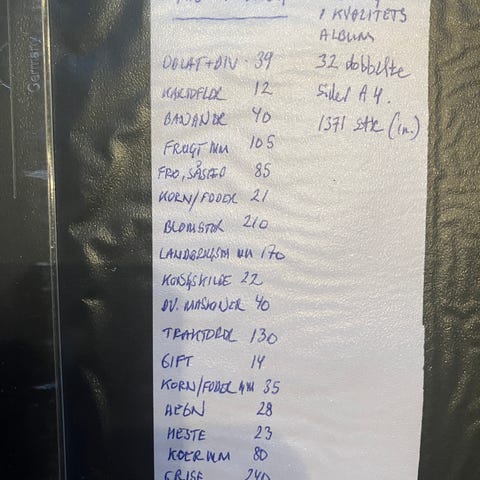 Germany
1 KVALITETS
ALBUM
32 dobbelte
Sider A4.
1371 stk
39
KARTOFLER 12
BANANER 40
FRUGT MM 105
FRØ, SÅSÆD 85
KORN/FODER 21
BLOMSTER 210
MM 170
KONGSKILDE 22
DV. MASKINER 40
TRAKTORER 130
GIFT 14
KORN/FODER MM 35
HEGN 28
HESTE 23
KOER MM 80
GRISE 240